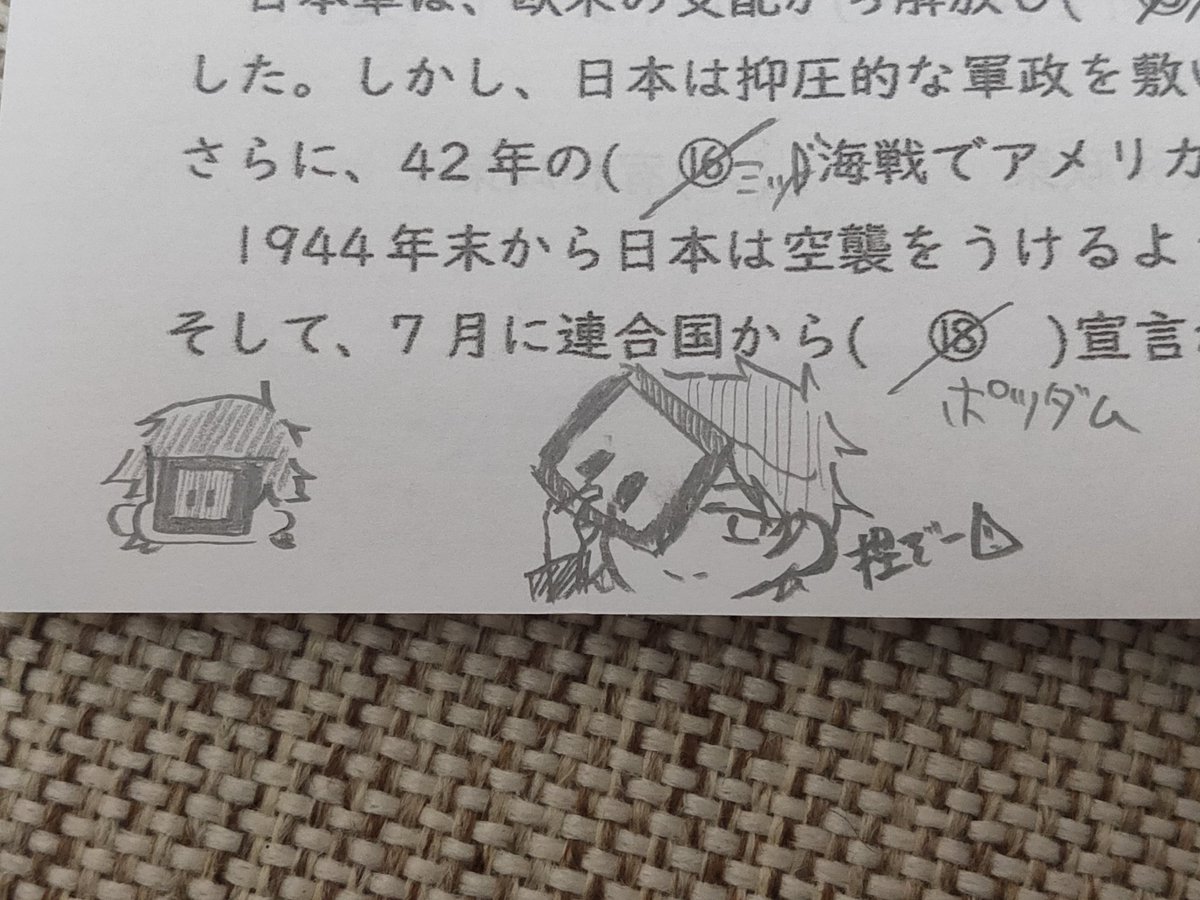 日本軍は、欧米の支配から解放し(
した。しかし、日本は抑圧的な軍政を敷い
さらに、42年の( ⑯ ミッド海戦でアメリカ
1944年末から日本は空襲をうけるよ
そして、7月に連合国から( ⑱ )宣言
ポツダム